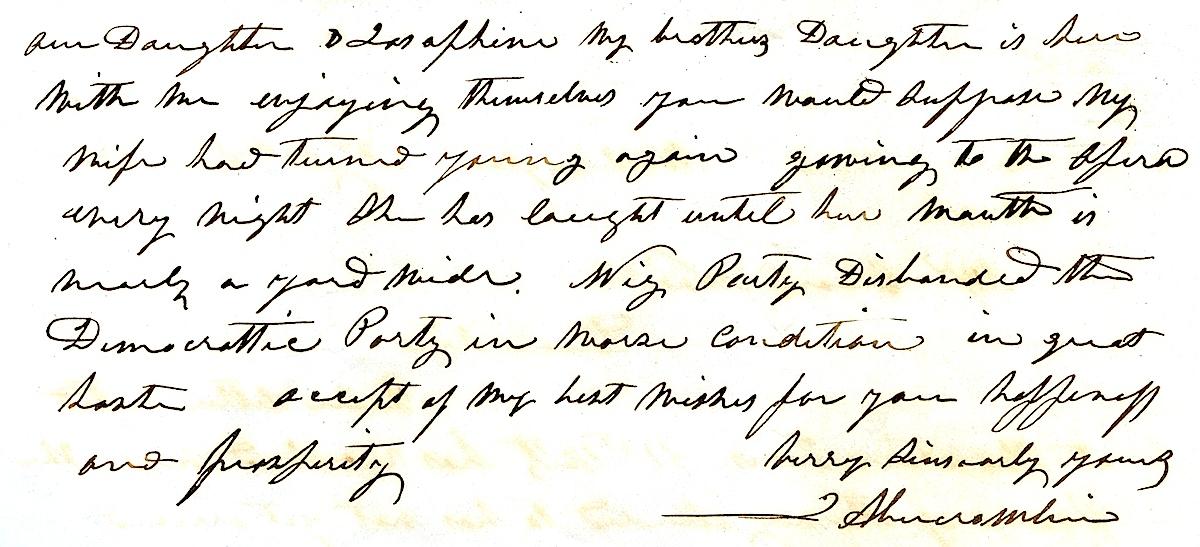 our Daughter & Josaphine my brothers Daughter is here
with me enjoying themselves you would suppose my
wife had turned young again gowing to the Opera
every night She has laught until her mouth is
nearly a yard wide. Wig Party Disbanded the
Democrattic Party in worse condition in great
haste accept of my best wishes for your happiness
and prosperity verry sincearly yours
Abercrombie